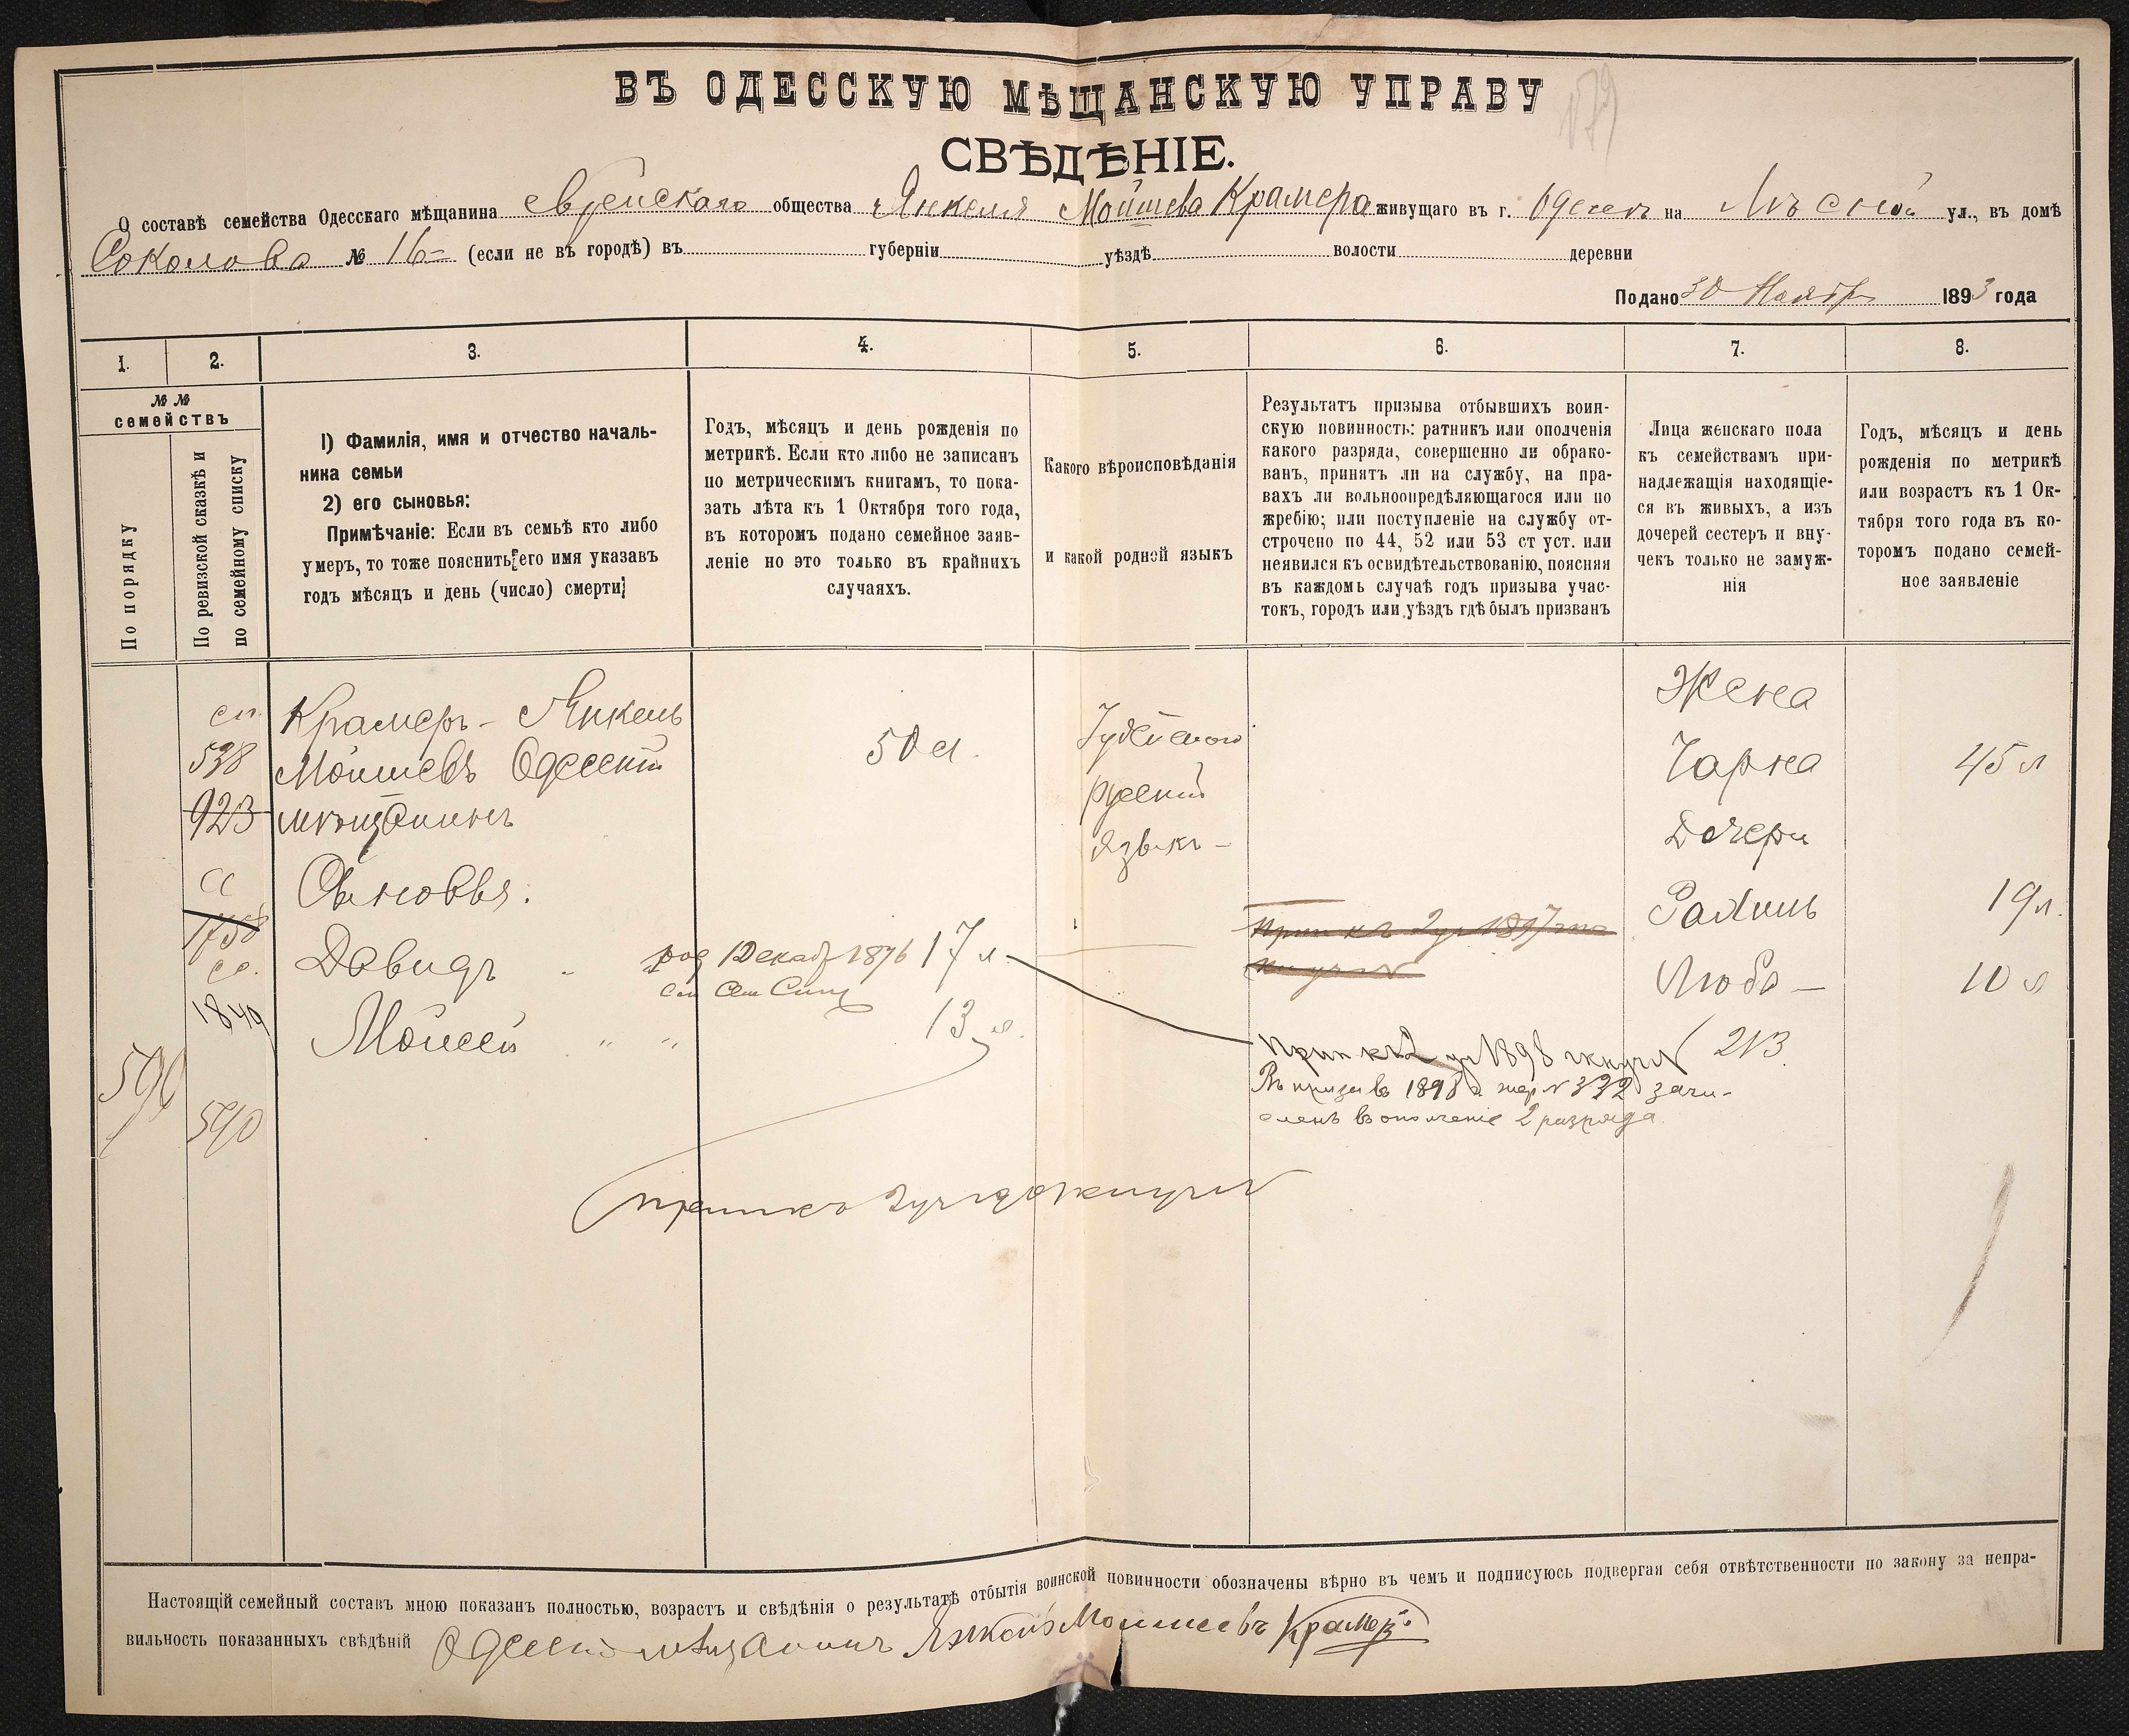 ВЪ ОДЕССКУЮ МѢЩАНСКУЮ УПРАВУ
СВѢДѢНІЕ.
О составѣ семейства Одесскаго мѣщанина еврейскаго общества Янкеля Мойшева Крамера живущаго въ г. Одессѣ на ул., въ домѣ
Соколова № 16 (если не въ городѣ) въ губерніи уѣздѣ волости деревни
Подано 30 Ноябр 1893 года
1. 2. 3. 4. 5. 6. 7. 8.
№ №
семействъ
По порядку
По ревизской сказкѣ и
по семейному списку
1) Фамилія, имя и отчество началь-
ника семьи
2) его сыновья:
Примѣчаніе: Если въ семьѣ кто либо
умеръ, то тоже пояснить его имя указавъ
годъ мѣсяцъ и день (число) смерти;
Годъ, мѣсяцъ и день рожденія по
метрикѣ. Если кто либо не записанъ
по метрическимъ книгамъ, то пока-
зать лѣта къ 1 Октября того года,
въ которомъ подано семейное заяв-
леніе но это только въ крайнихъ
случаяхъ.
Какого вѣроисповѣданія
и какой родной языкъ
Результатъ призыва отбывшихъ воин-
скую повинность: ратникъ или ополченія
какого разряда, совершенно ли обрако-
ванъ, принятъ ли на службу, на пра-
вахъ ли вольноопредѣляющагося или по
жребію; или поступленіе на службу от-
строчено по 44, 52 или 53 ст уст. или
неявился къ освидѣтельствованію, поясняя
въ каждомъ случаѣ годъ призыва учас-
токъ, городъ или уѣздъ гдѣ былъ призванъ
Лица женскаго пола
къ семействамъ при-
надлежащія находящіе-
ся въ живыхъ, а изъ
дочерей сестеръ и вну-
чекъ только не замуж-
нія
Годъ, мѣсяцъ и день
рожденія по метрикѣ
или возрастъ къ 1 Ок-
тября того года въ ко-
торомъ подано семей-
ное заявленіе
сп. Крамеръ - Янкель
538 Мойшевъ Одесскій
923 мѣщанинъ
50 л.
Іудейскаго
русскій
языкъ -
Жена
Чарна 45 л
Дочери
Рахиль 19 л.
Люба - 10 л
Сыновья:
1758
Давидъ род 1 Декаб 1876 17 л.
1849
Моисей " " 13 л.
1898 213
Въ призывъ 1898 г. жер. № 332 зачи-
сленъ въ ополченіе 2 разряда
590
590
Настоящій семейный составъ мною показанъ полностью, возрастъ и свѣдѣнія о результатѣ отбытія воинской повинности обозначены вѣрно въ чемъ и подписуюсь подвергая себя отвѣтственности по закону за непра-
вильность показанныхъ свѣдѣній Одесскій мѣщанинъ Янкель Моишевъ Крамеръ